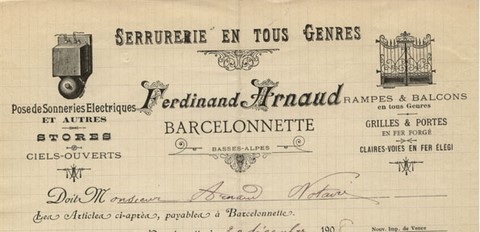 SERRURERIE EN TOUS GENRES
Ferdinand Arnaud
BARCELONNETTE
BASSES-ALPES
Pose de Sonneries Electriques
ET AUTRES
STORES
CIELS-OUVERTS
RAMPES & BALCONS
en tous Genres
GRILLES & PORTES
EN FER FORGÉ
CLAIRES-VOIES EN FER ÉLEGI
Doit Monsieur Arnaud Notaire
Les Articles ci-après, payables à Barcelonnette.
décembre 190
Nouv. Imp. de Vence